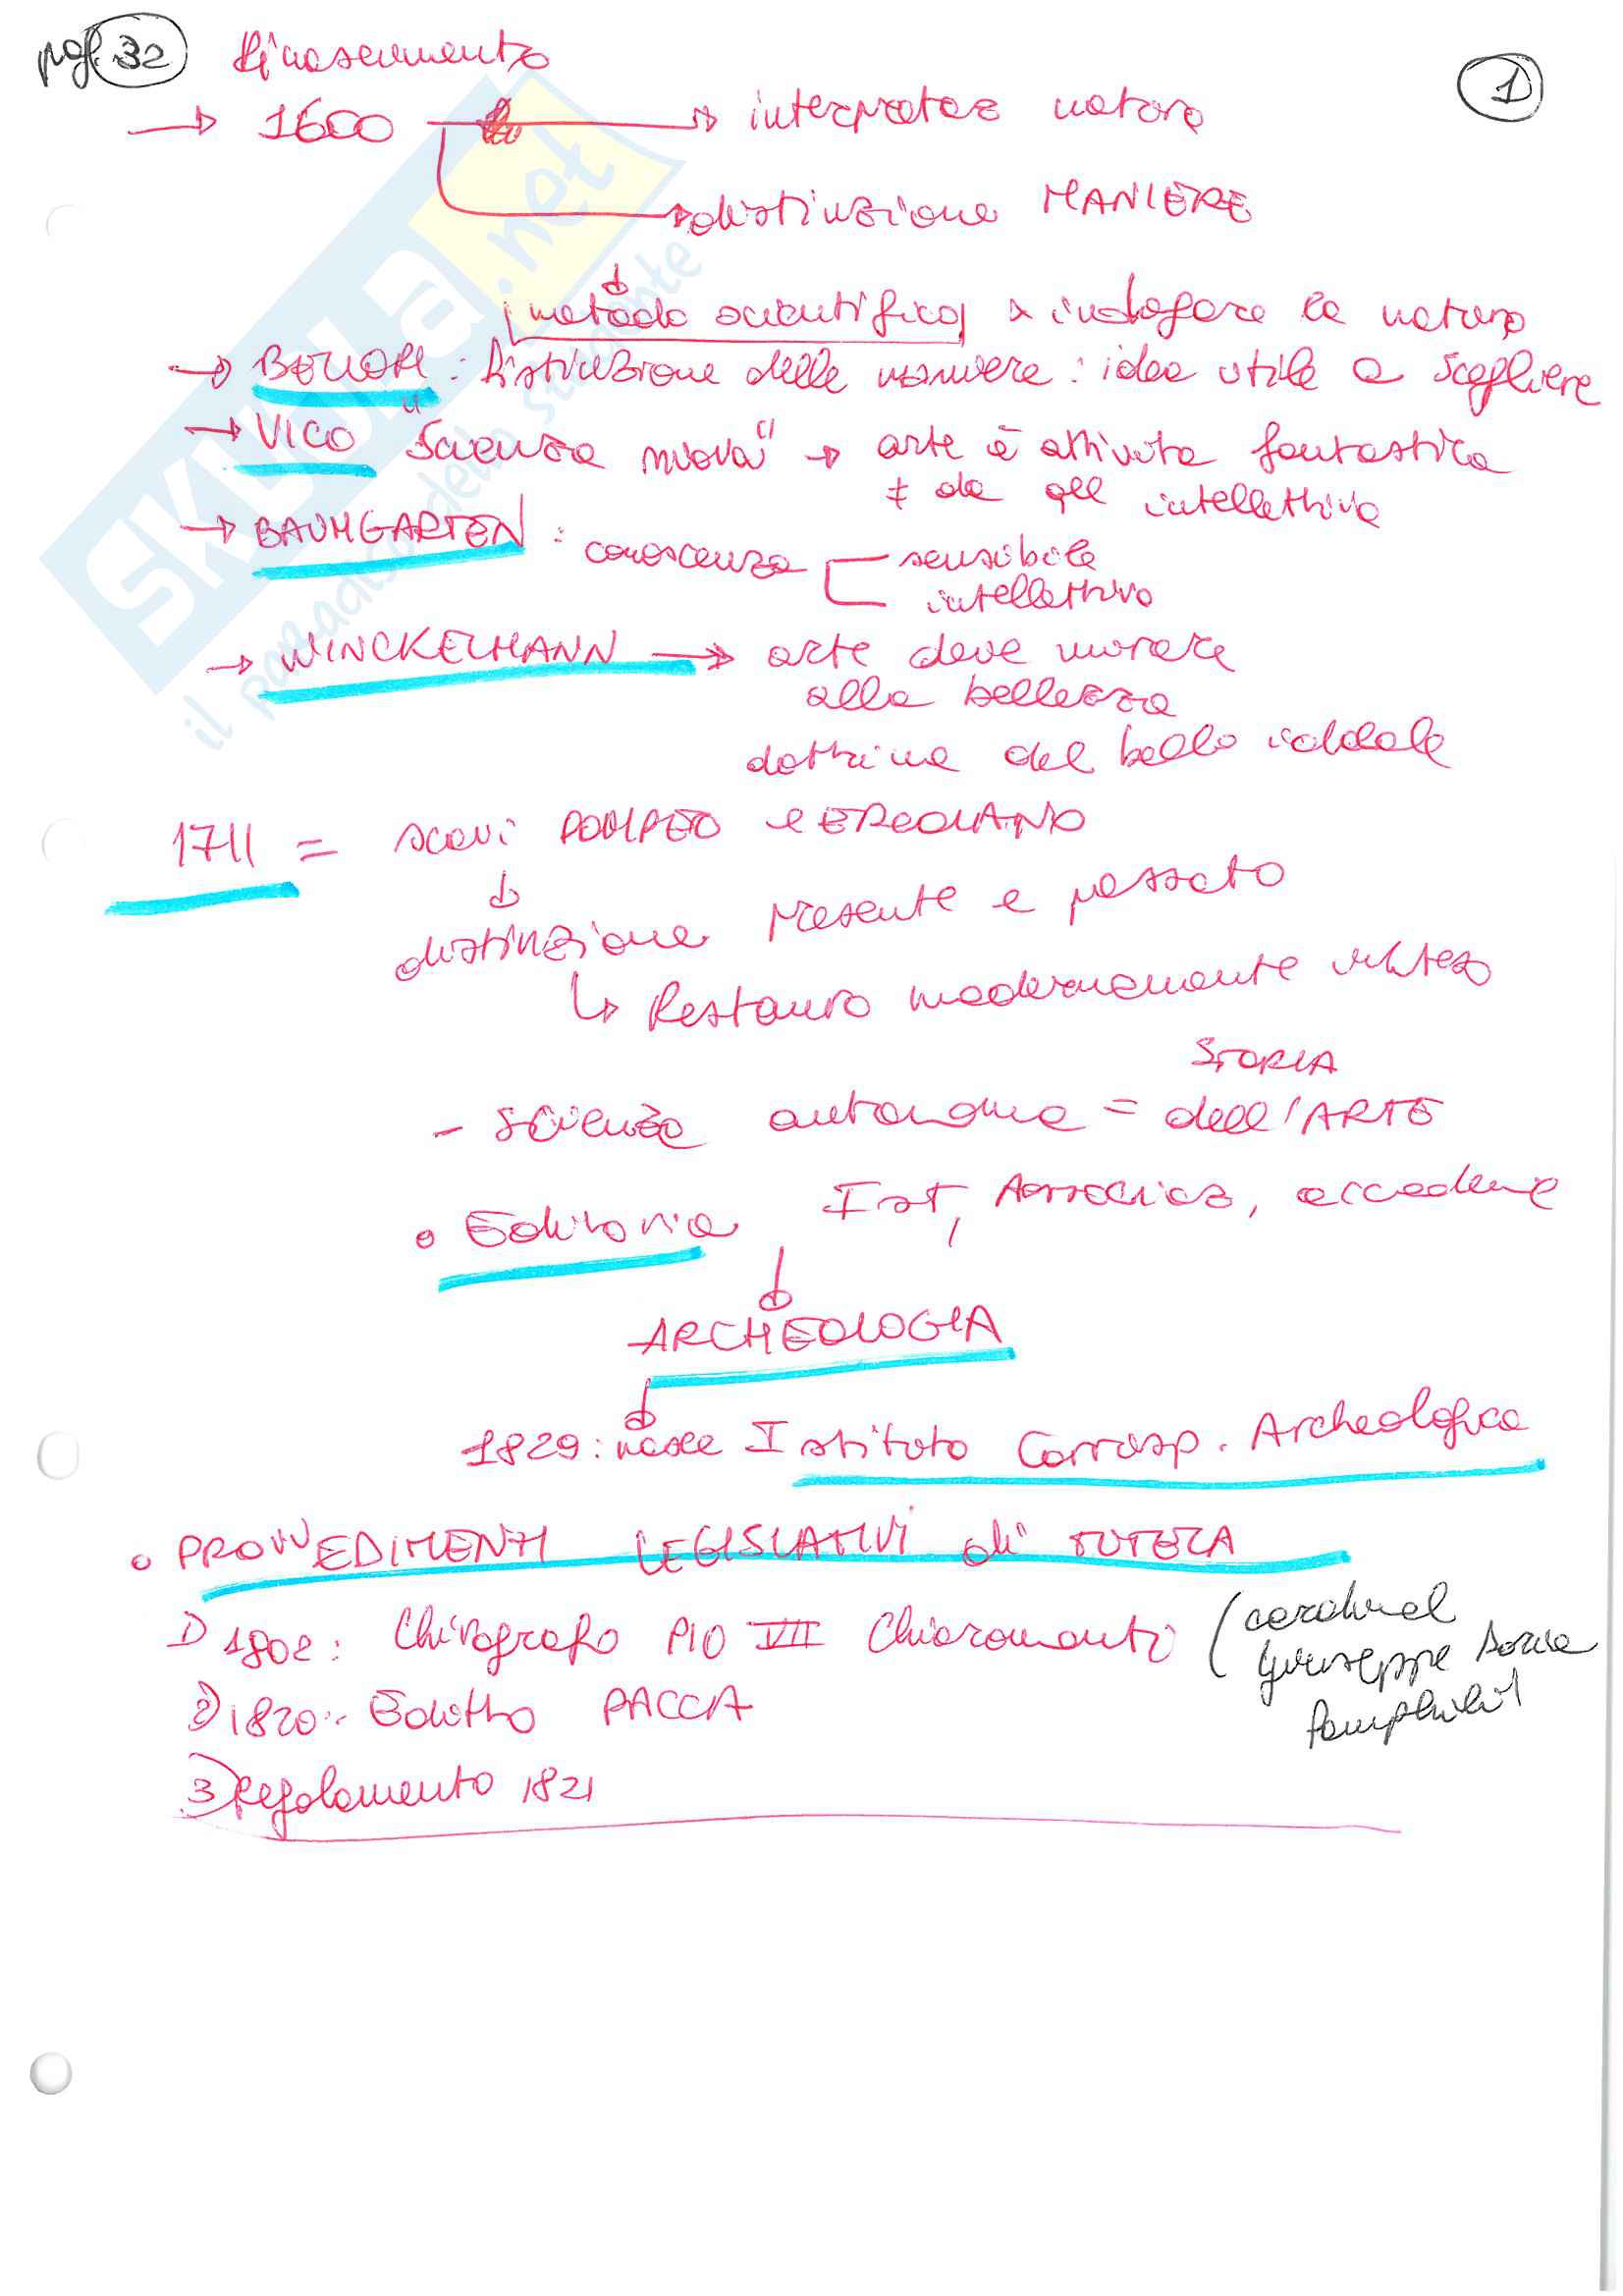 pag. 32 Rinascimento
1
→ 1600 → interpretaz natura
→ distinzione MANIERE
metodo scientifico x indagare la natura
→ BELLORI: Distinzione delle maniere: idea utile a scegliere
→ VICO "Scienza nuova" → arte è attività fantastica
≠ da qll intellettiva
→ BAUMGARTEN: conoscenza sensibile
intellettiva
→ WINCKELMANN → arte deve mirare
alla bellezza
dottrina del bello ideale
1711 = scavi POMPEO e ERCOLANO
distinzione presente e passato
↳ Restauro modernamente inteso
STORIA
- scienza autonoma = dell'ARTE
• Editoria Ist, Associaz, accademie
ARCHEOLOGIA
1829: nasce Istituto Corrisp. Archeologica
• PROVVEDIMENTI LEGISLATIVI di TUTELA
1) 1802: Chirografo PIO VII Chiaromonti (cardinal
Giuseppe Doria
Pamphili)
2) 1820: Editto PACCA
3) Regolamento 1821
SKUOLA.net
il paradiso dello studente